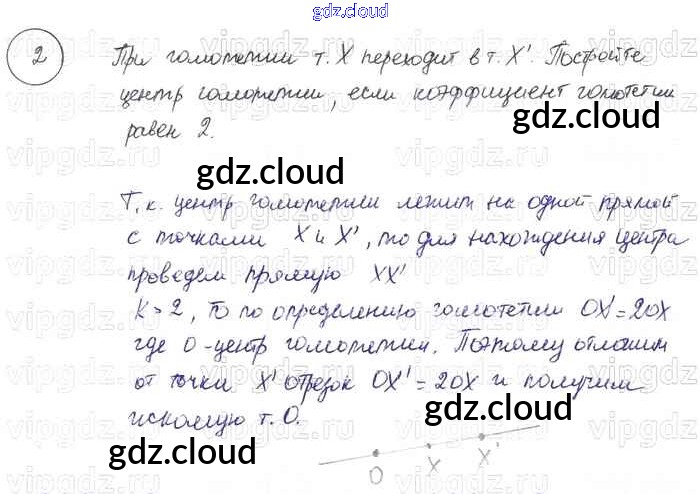 gdz.cloud
2 При гомотетии т. X переходит в т. X'. Постройте
центр гомотетии, если коэффициент гомотетии
равен 2.
gdz.cloud
gdz.cloud
Т.к. центр гомотетии лежит на одной прямой
с точками X и X', то для нахождения центра
проведем прямую XX'
K = 2, то по определению гомотетии OX' = 2OX
где O - центр гомотетии. Поэтому отложим
от точки X' отрезок OX' = 2OX и получим
искомую т. O.
gdz.cloud
gdz.cloud
O X X'